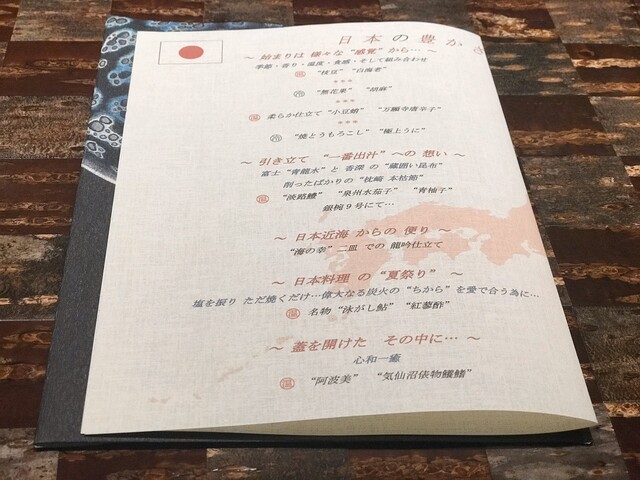 日本の豊かさ
～ 始まりは 様々な “感覚” から… ～
季節・香り・温度・食感・そして組み合わせ
温 “枝豆” “白海老”
***
冷 “無花果” “胡麻”
***
温 柔らか仕立て “小豆蛸” “万願寺唐辛子”
***
冷 “焼とうもろこし” “極上うに”
～ 引き立て “一番出汁” への 想い ～
富士 “青龍水” と 香深 の “蔵囲い昆布”
削ったばかりの “枕崎 本枯節”
温 “淡路鱧” “泉州水茄子” “青柚子”
銀椀９号にて…
～ 日本近海 からの 便り ～
“海の幸” 二皿 での 龍吟仕立て
～ 日本料理 の “夏祭り” ～
塩を振り ただ焼くだけ…偉大なる炭火の “ちから” を愛で合う為に…
温 名物 “泳がし鮎” “紅蓼酢”
～ 蓋を開けた その中に… ～
心和一癒
温 “阿波美” “気仙沼俵物鱶鰭”